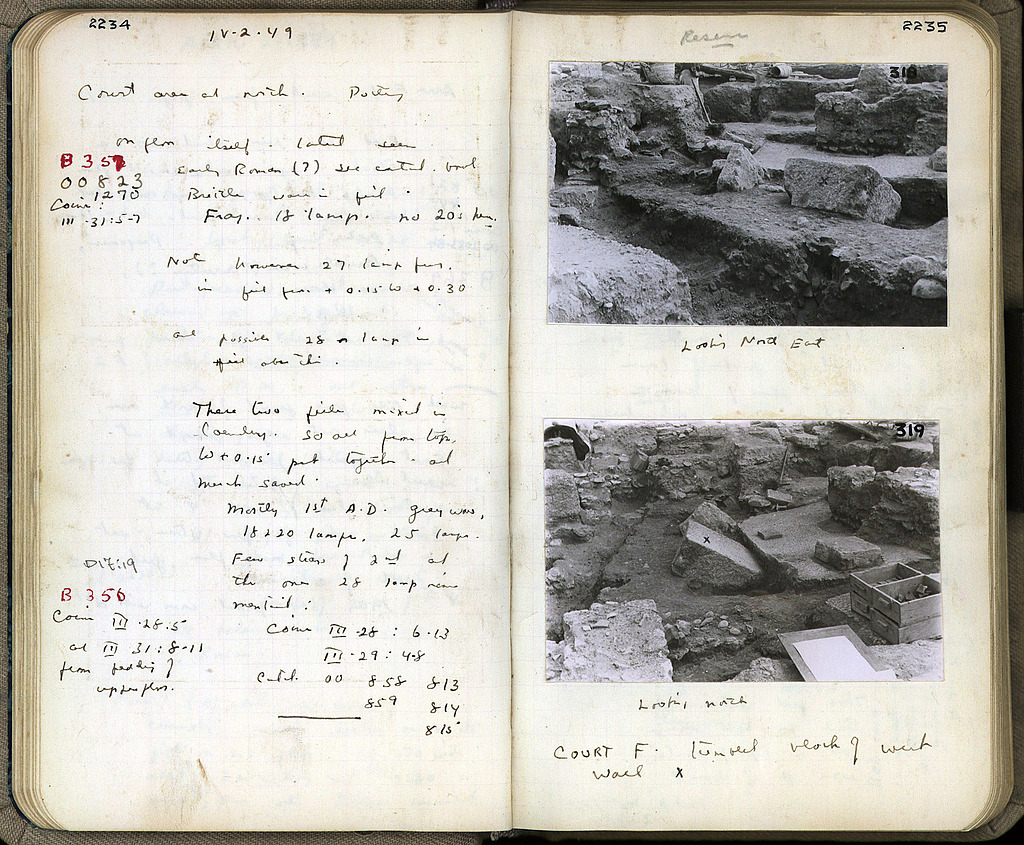 2234
IV-2-49
Court area at north. Pottery
on floor itself. latest seen
B 357
early Roman (?) see catal. bowl
00 823
Brittle ware in fill.
Coin: 1270
III-31:5-7
Frag. 18 lamps. no 20's here.
Not however 27 lamp frs.
in fill fr. + 0.15 to + 0.30
and possible 28 lamp in
fill above this.
These two fills mixed in
Laundry. So all from top,
to + 0.15 put together and
much saved.
Mostly 1st A.D. gray ware,
18 & 20 lamps, 25 lamps.
Few strays of 2nd and
the one 28 lamp
:
Coins III-28:6-13
III-29:4-8
Catal. 00 858 813
859 814
815
DIZ:19
B 356
Coins III-28:5
and III 31:8-11
from packing of
upper floor.
2235
318
Looking North East
319
x
Looking north
COURT F. tumbled block of west
wall x